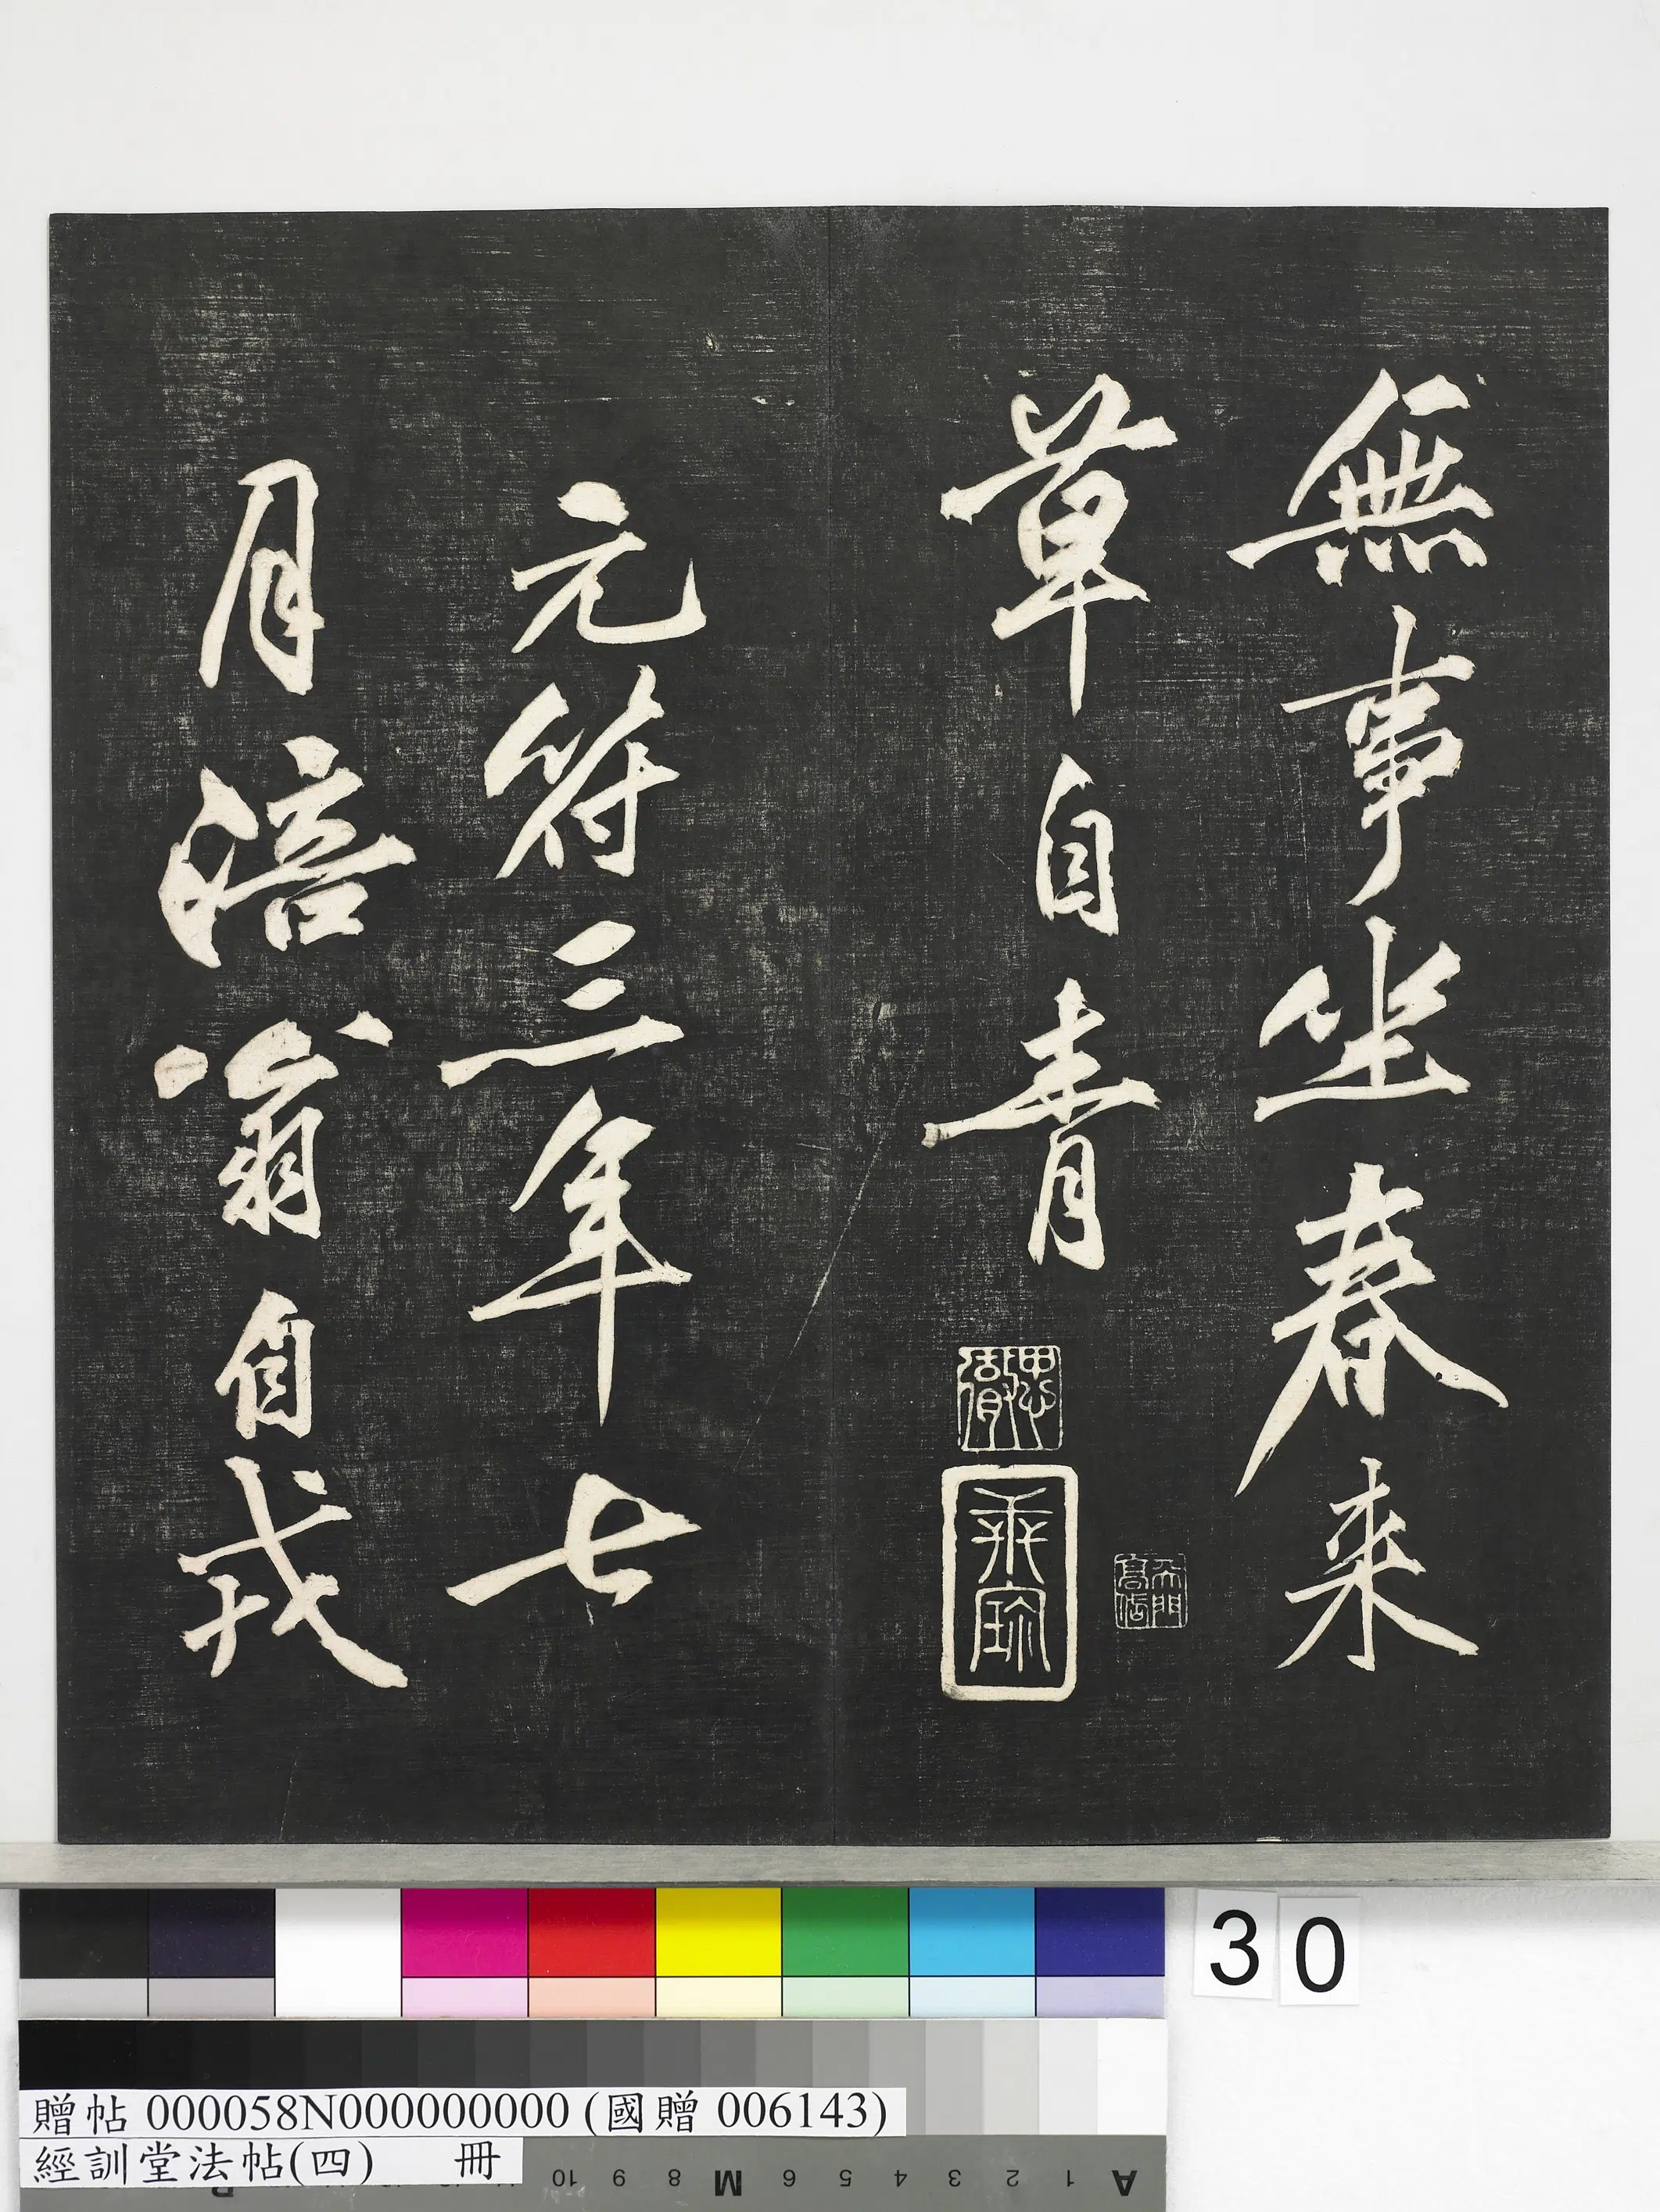 無事坐春来
草自青
元符三年七
月涪翁自戎
30
贈帖 000058N000000000 (國贈 006143)
經訓堂法帖(四) 冊
10 9 8 M 6 5 4 3 2 1 A